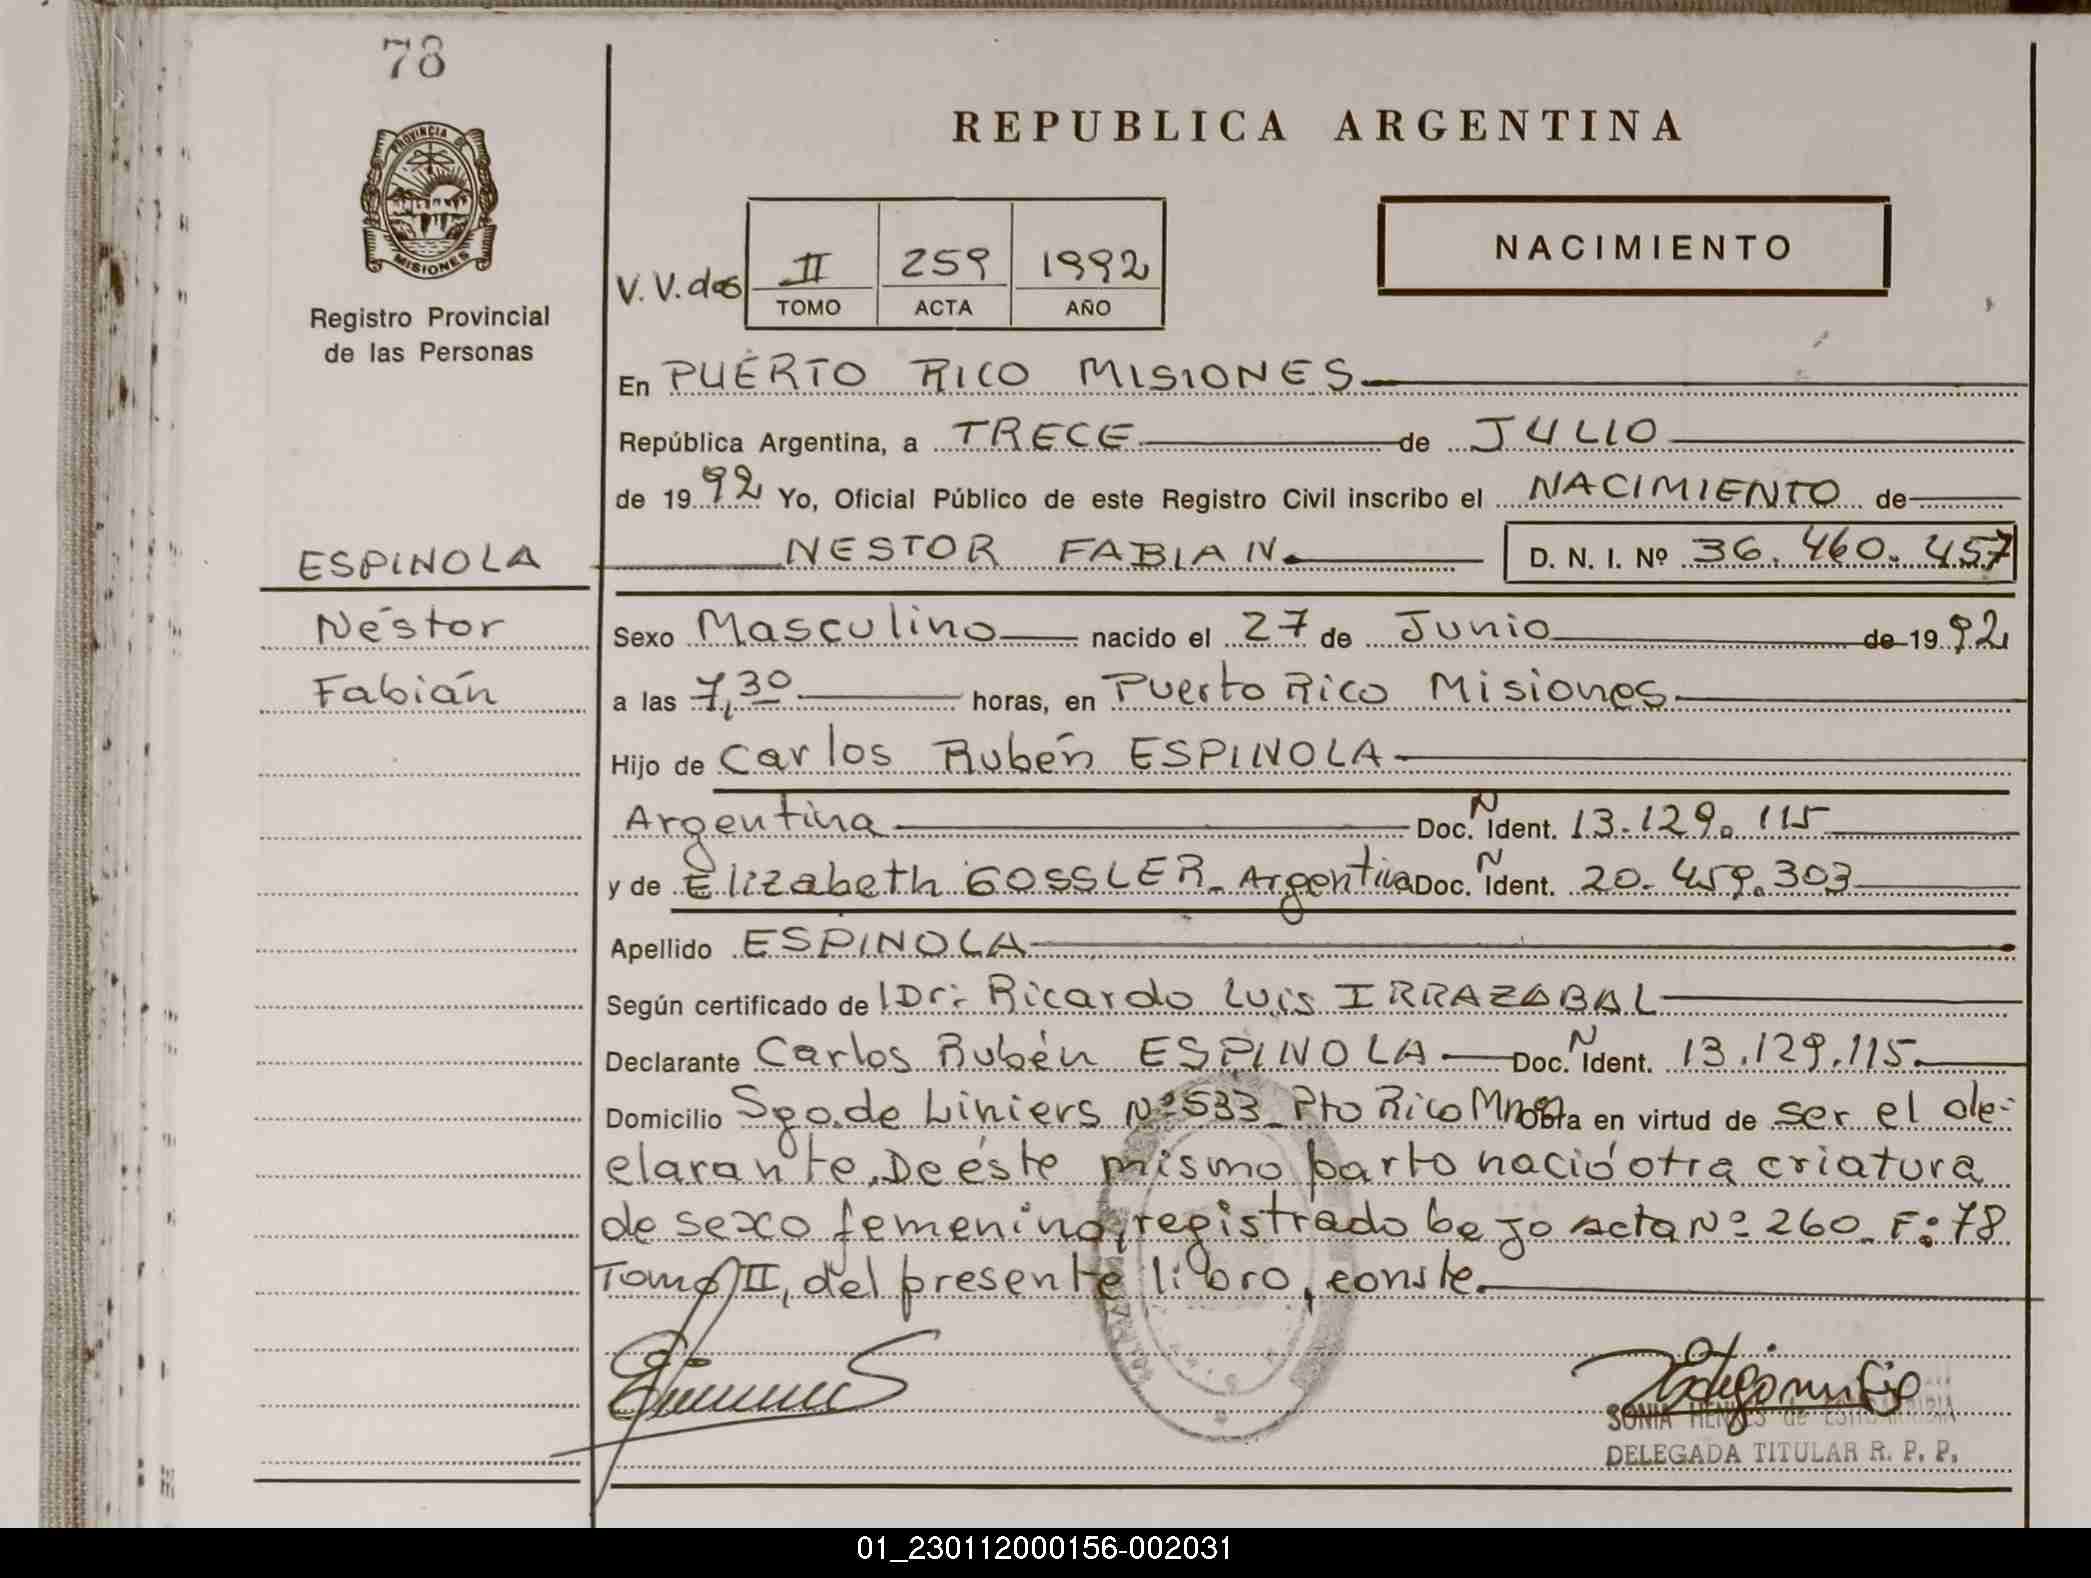 78
PROVINCIA DE
MISIONES
Registro Provincial
de las Personas
REPUBLICA ARGENTINA
NACIMIENTO
V. V. dos
II 259 1992
TOMO ACTA AÑO
En PUERTO RICO MISIONES
República Argentina, a TRECE de JULIO
de 1992 Yo, Oficial Público de este Registro Civil inscribo el NACIMIENTO de
ESPINOLA
NESTOR FABIAN D. N. I. Nº 36.460.457
Néstor
Sexo Masculino nacido el 27 de Junio de 1992
Fabián
a las 7,30 horas, en Puerto Rico Misiones
Hijo de Carlos Rubén ESPINOLA
Argentina Doc. N Ident. 13.129.115
y de Elizabeth GOSSLER - Argentina Doc. N Ident. 20.459.303
Apellido ESPINOLA
Según certificado de Dr: Ricardo Luis IRRAZABAL
Declarante Carlos Rubén ESPINOLA Doc. N Ident. 13.129.115.
Domicilio Sgo. de Liniers Nº 533 Pto Rico Mnes Obra en virtud de ser el de-
clarante. De éste mismo parto nació otra criatura
de sexo femenino, registrado bajo acta Nº 260 - F: 78
Tomo II, del presente libro, conste.
SONIA HENNES de
DELEGADA TITULAR R. P. P.
01_230112000156-002031